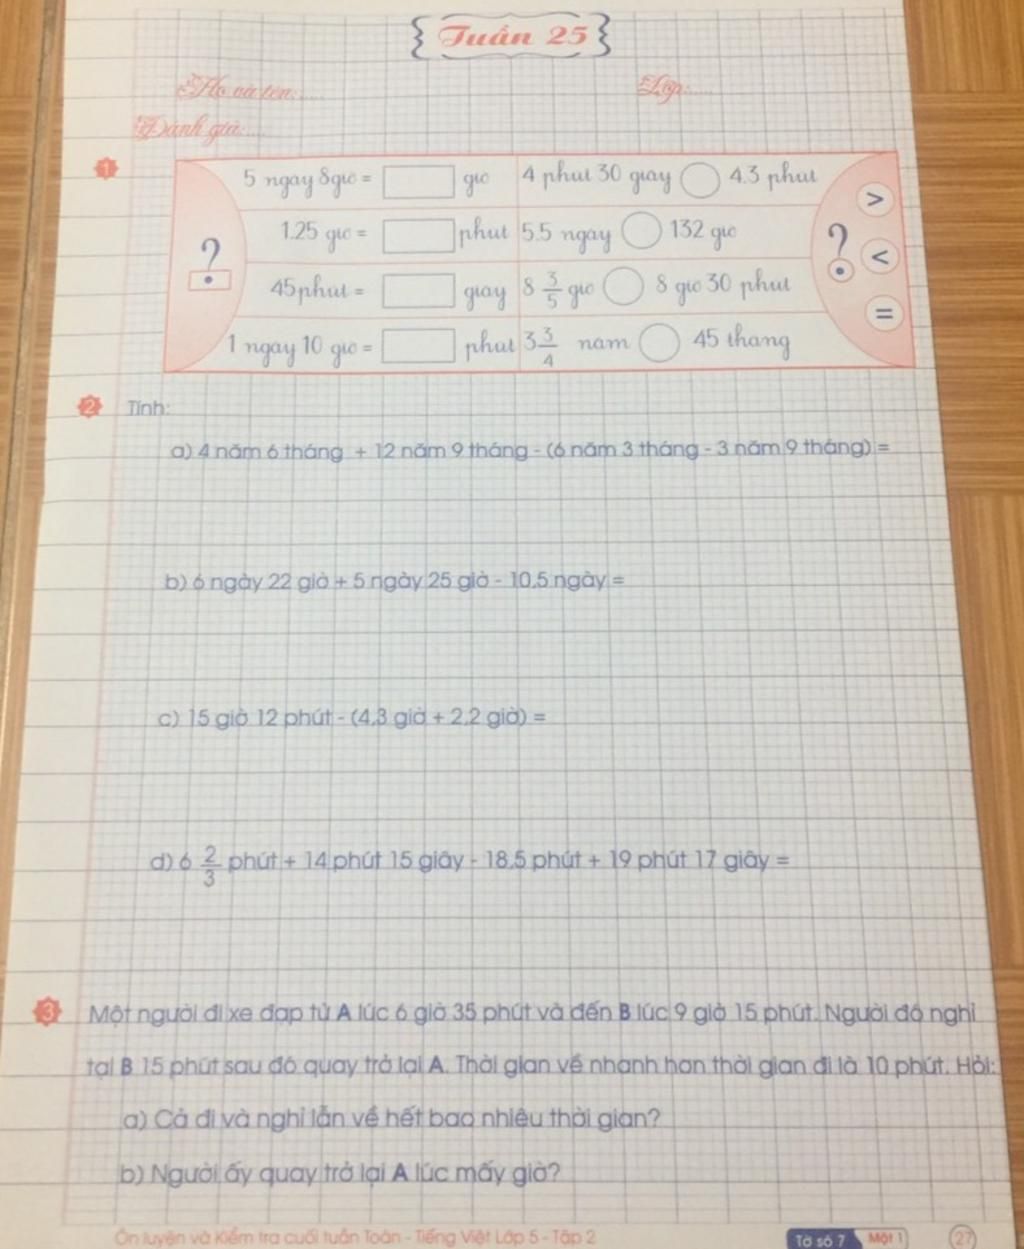 Tuần 25
Họ và tên:....
Lớp:
Đánh giá:....
1
5 ngay 8 gio = gio 4 phut 30 giay 4.3 phut >
1.25 gio = phut 5.5 ngay 132 gio <
? ?
45 phut = giay 8 3/5 gio 8 gio 30 phut
1 ngay 10 gio = phut 3 3/4 nam 45 thang =
2 Tính:
a) 4 năm 6 tháng + 12 năm 9 tháng - (6 năm 3 tháng - 3 năm 9 tháng) =
b) 6 ngày 22 giờ + 5 ngày 25 giờ - 10,5 ngày =
c) 15 giờ 12 phút - (4,3 giờ + 2,2 giờ) =
d) 6 2/3 phút + 14 phút 15 giây - 18,5 phút + 19 phút 17 giây =
3 Một người đi xe đạp từ A lúc 6 giờ 35 phút và đến B lúc 9 giờ 15 phút. Người đó nghỉ
tại B 15 phút sau đó quay trở lại A. Thời gian về nhanh hơn thời gian đi là 10 phút. Hỏi:
a) Cả đi và nghỉ lẫn về hết bao nhiêu thời gian?
b) Người ấy quay trở lại A lúc mấy giờ?
Ôn luyện và Kiểm tra cuối tuần Toán - Tiếng Việt Lớp 5 - Tập 2 Tờ số 7 Mặt 1 27